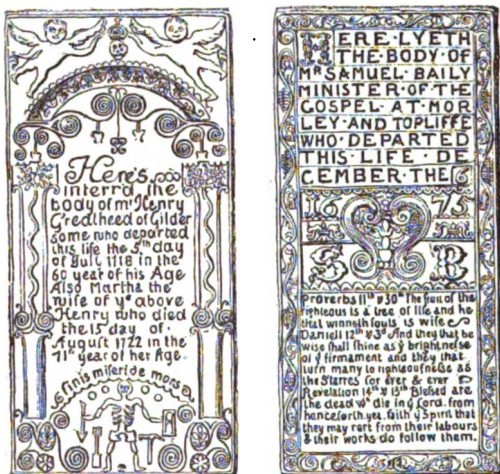 Here's
interrd the
body of mr Henry
Gredlheed of Gilder
some who departed
this life the 5th day
of July 1718 in the
60 year of his Age
Also Martha the
wife of ye above
Henry who died
the 15 day of
August 1722 in the
71th year of her Age.
finis miseriæ mors
HERE LYETH
THE BODY OF
MR SAMUEL BAILY
MINISTER OF THE
GOSPEL AT MOR
LEY AND TOPLIFFE
WHO DEPARTED
THIS LIFE DE
CEMBER THE 6
16 75
S B
Proverbs 11th v 30th The fruit of the
righteous is a tree of life and he
that winneth souls is wise
Daniell 12th v 3d And they that be
wise shall shine as ye brightnesse
of ye firmament and they that
turn many to righteousnesse as
the Starres for ever & ever
Revelation 14th v 13th Blessed are
the dead wc die in ye Lord from
henceforth yea saith ye Spirit that
they may rest from their labours
& their works do follow them.